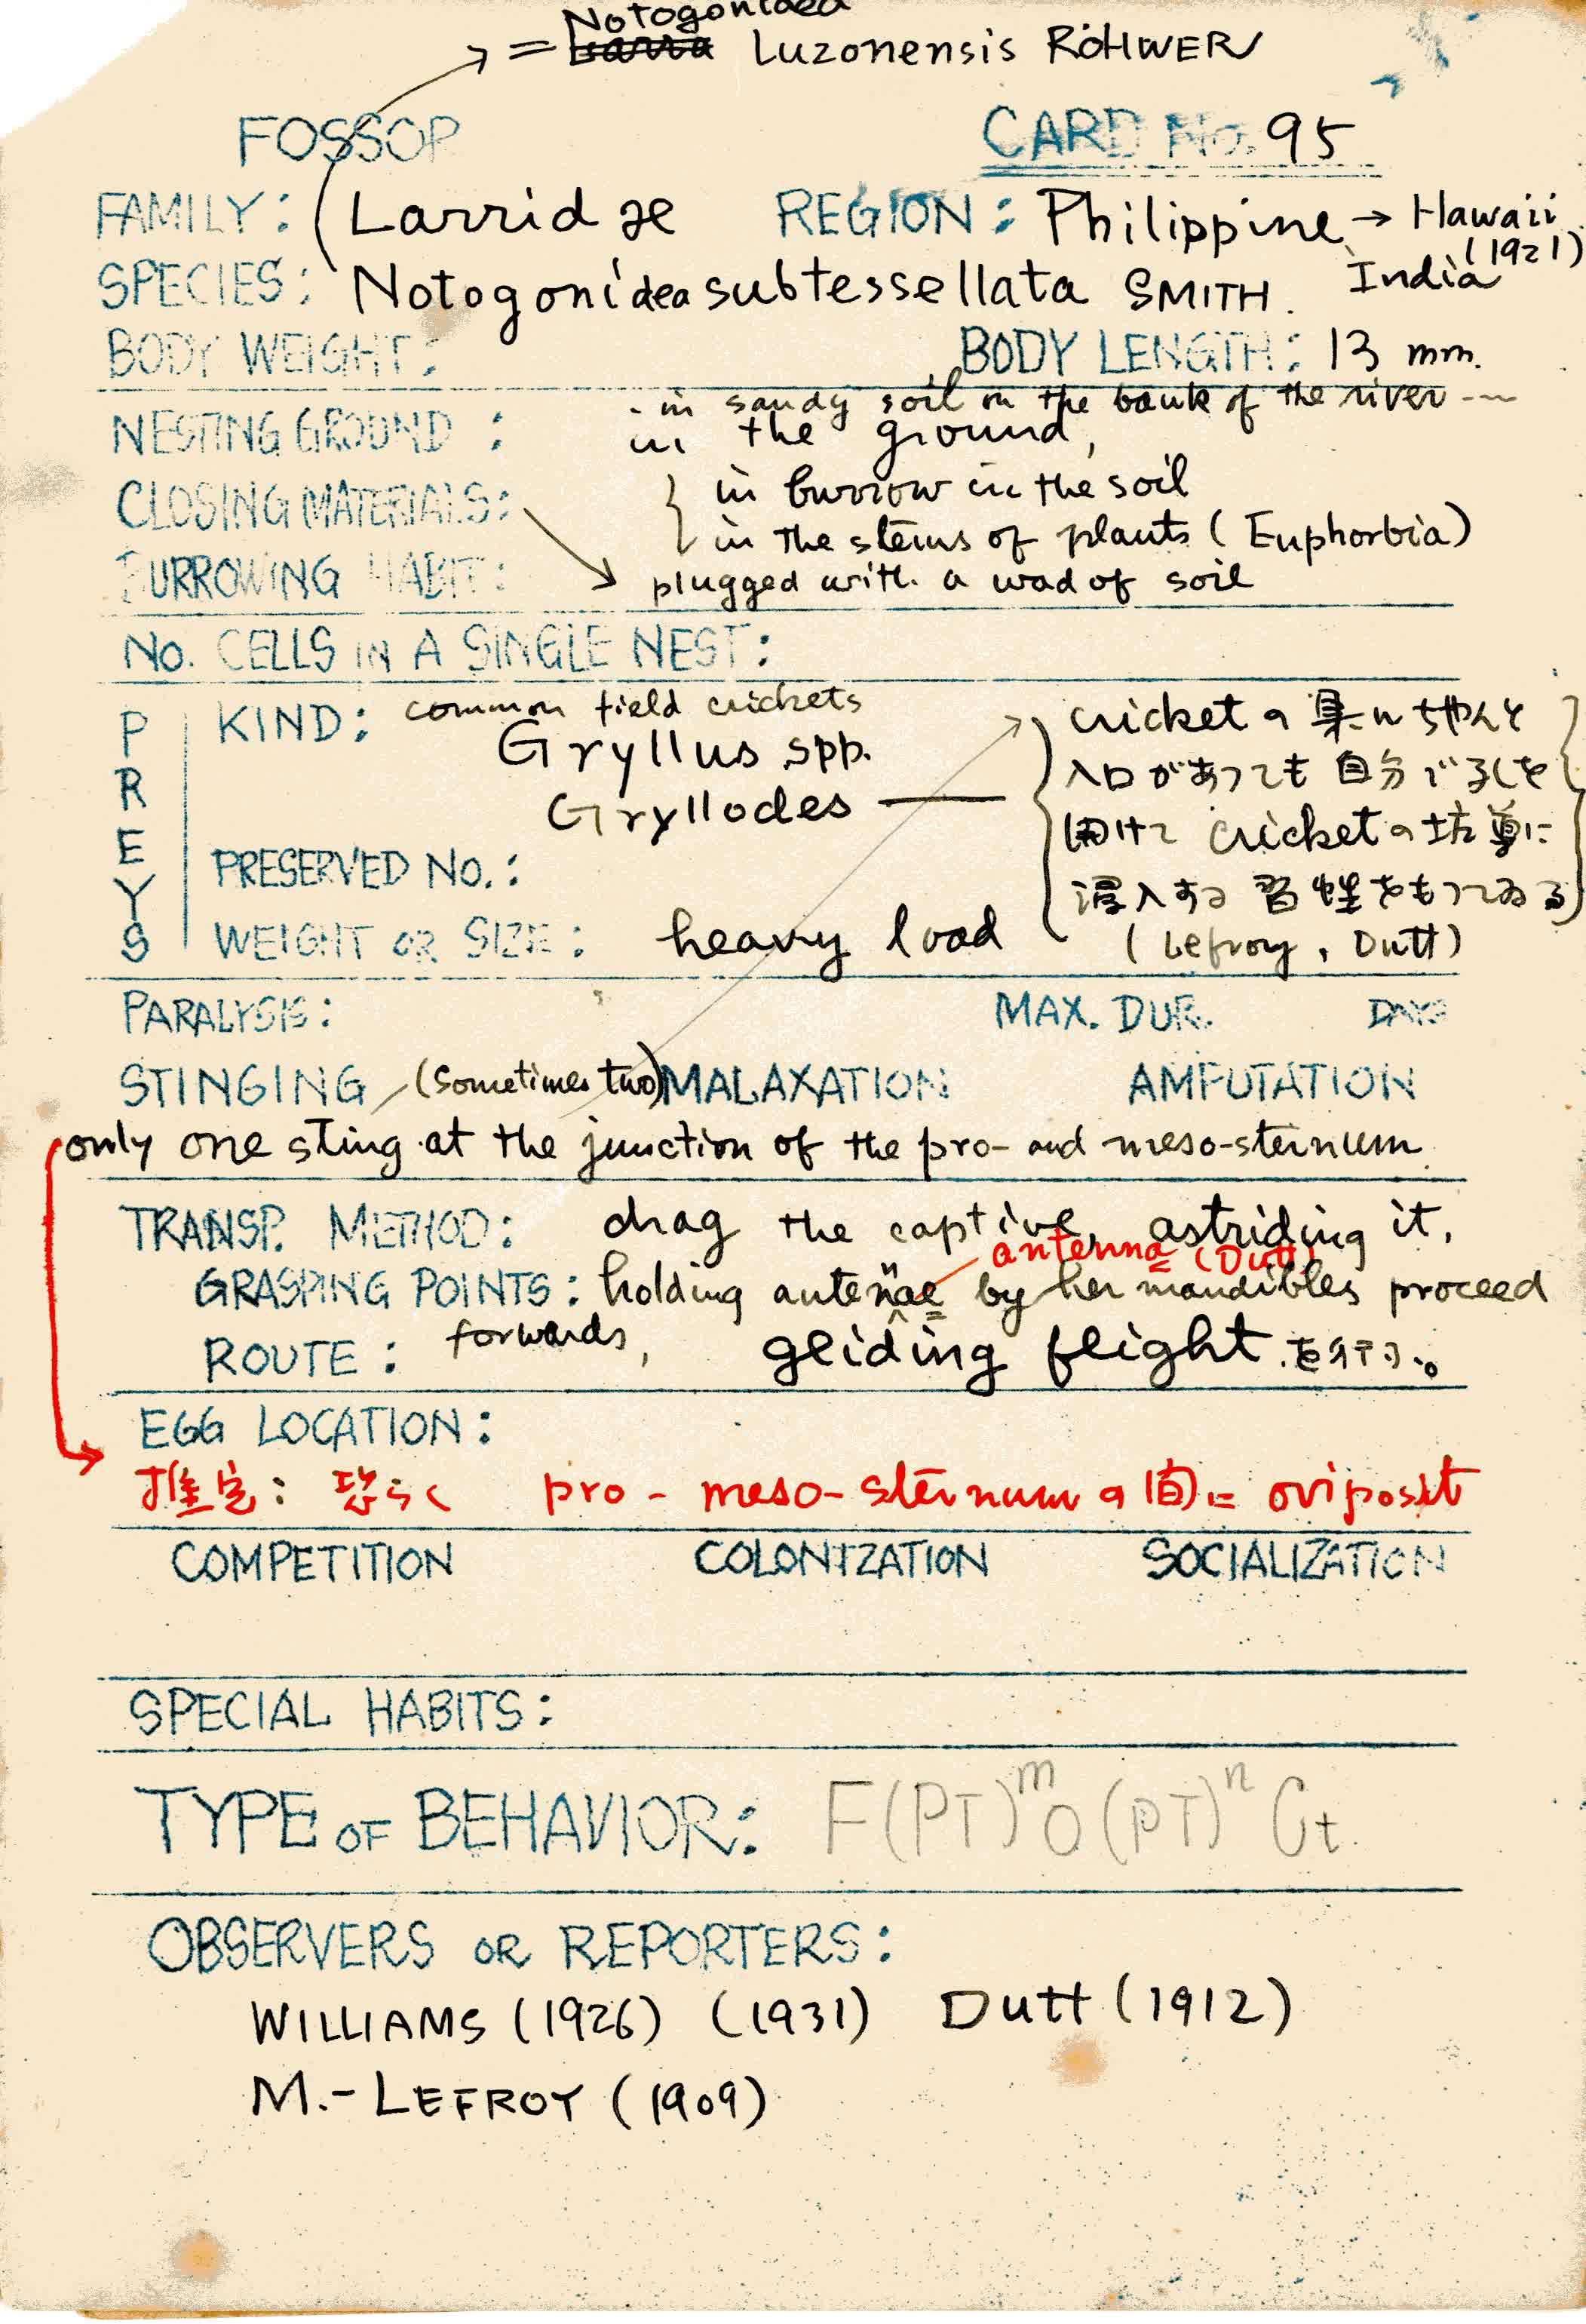 Notogonidea
= Larra Luzonensis ROHWER
FOSSOP CARD No. 95
FAMILY: Larridæ REGION: Philippine → Hawaii (1921)
India
SPECIES: Notogonidea subtessellata SMITH.
BODY WEIGHT: BODY LENGTH: 13 mm.
- in sandy soil on the bank of the river ---
NESTING GROUND: in the ground,
CLOSING MATERIALS: in burrow in the soil
in the stems of plants (Euphorbia)
BURROWING HABIT: plugged with a wad of soil
No. CELLS IN A SINGLE NEST:
PREYS
KIND: common field crickets
Gryllus spp.
Gryllodes
cricketの巣にちゃんと
入口があっても自分で孔を
開けて cricketの坑道に
侵入する習性をもつてゐる
(Lefroy, Dutt)
PRESERVED No.:
WEIGHT OR SIZE: heavy load
PARALYSIS: MAX. DUR. DAYS
STINGING (sometimes two) MALAXATION AMPUTATION
only one sting at the junction of the pro- and meso-sternum
TRANSP. METHOD: drag the captive, astriding it,
antenna (Dutt)
GRASPING POINTS: holding antennae by her mandibles proceed
ROUTE: forwards, gliding flight を行ふ。
EGG LOCATION:
推定: 恐らく pro-meso-sternumの間に oviposit
COMPETITION COLONIZATION SOCIALIZATION
SPECIAL HABITS:
TYPE OF BEHAVIOR: F(PT)ᵐO(PT)ⁿCt.
OBSERVERS OR REPORTERS:
WILLIAMS (1926) (1931) Dutt (1912)
M.-LEFROY (1909)